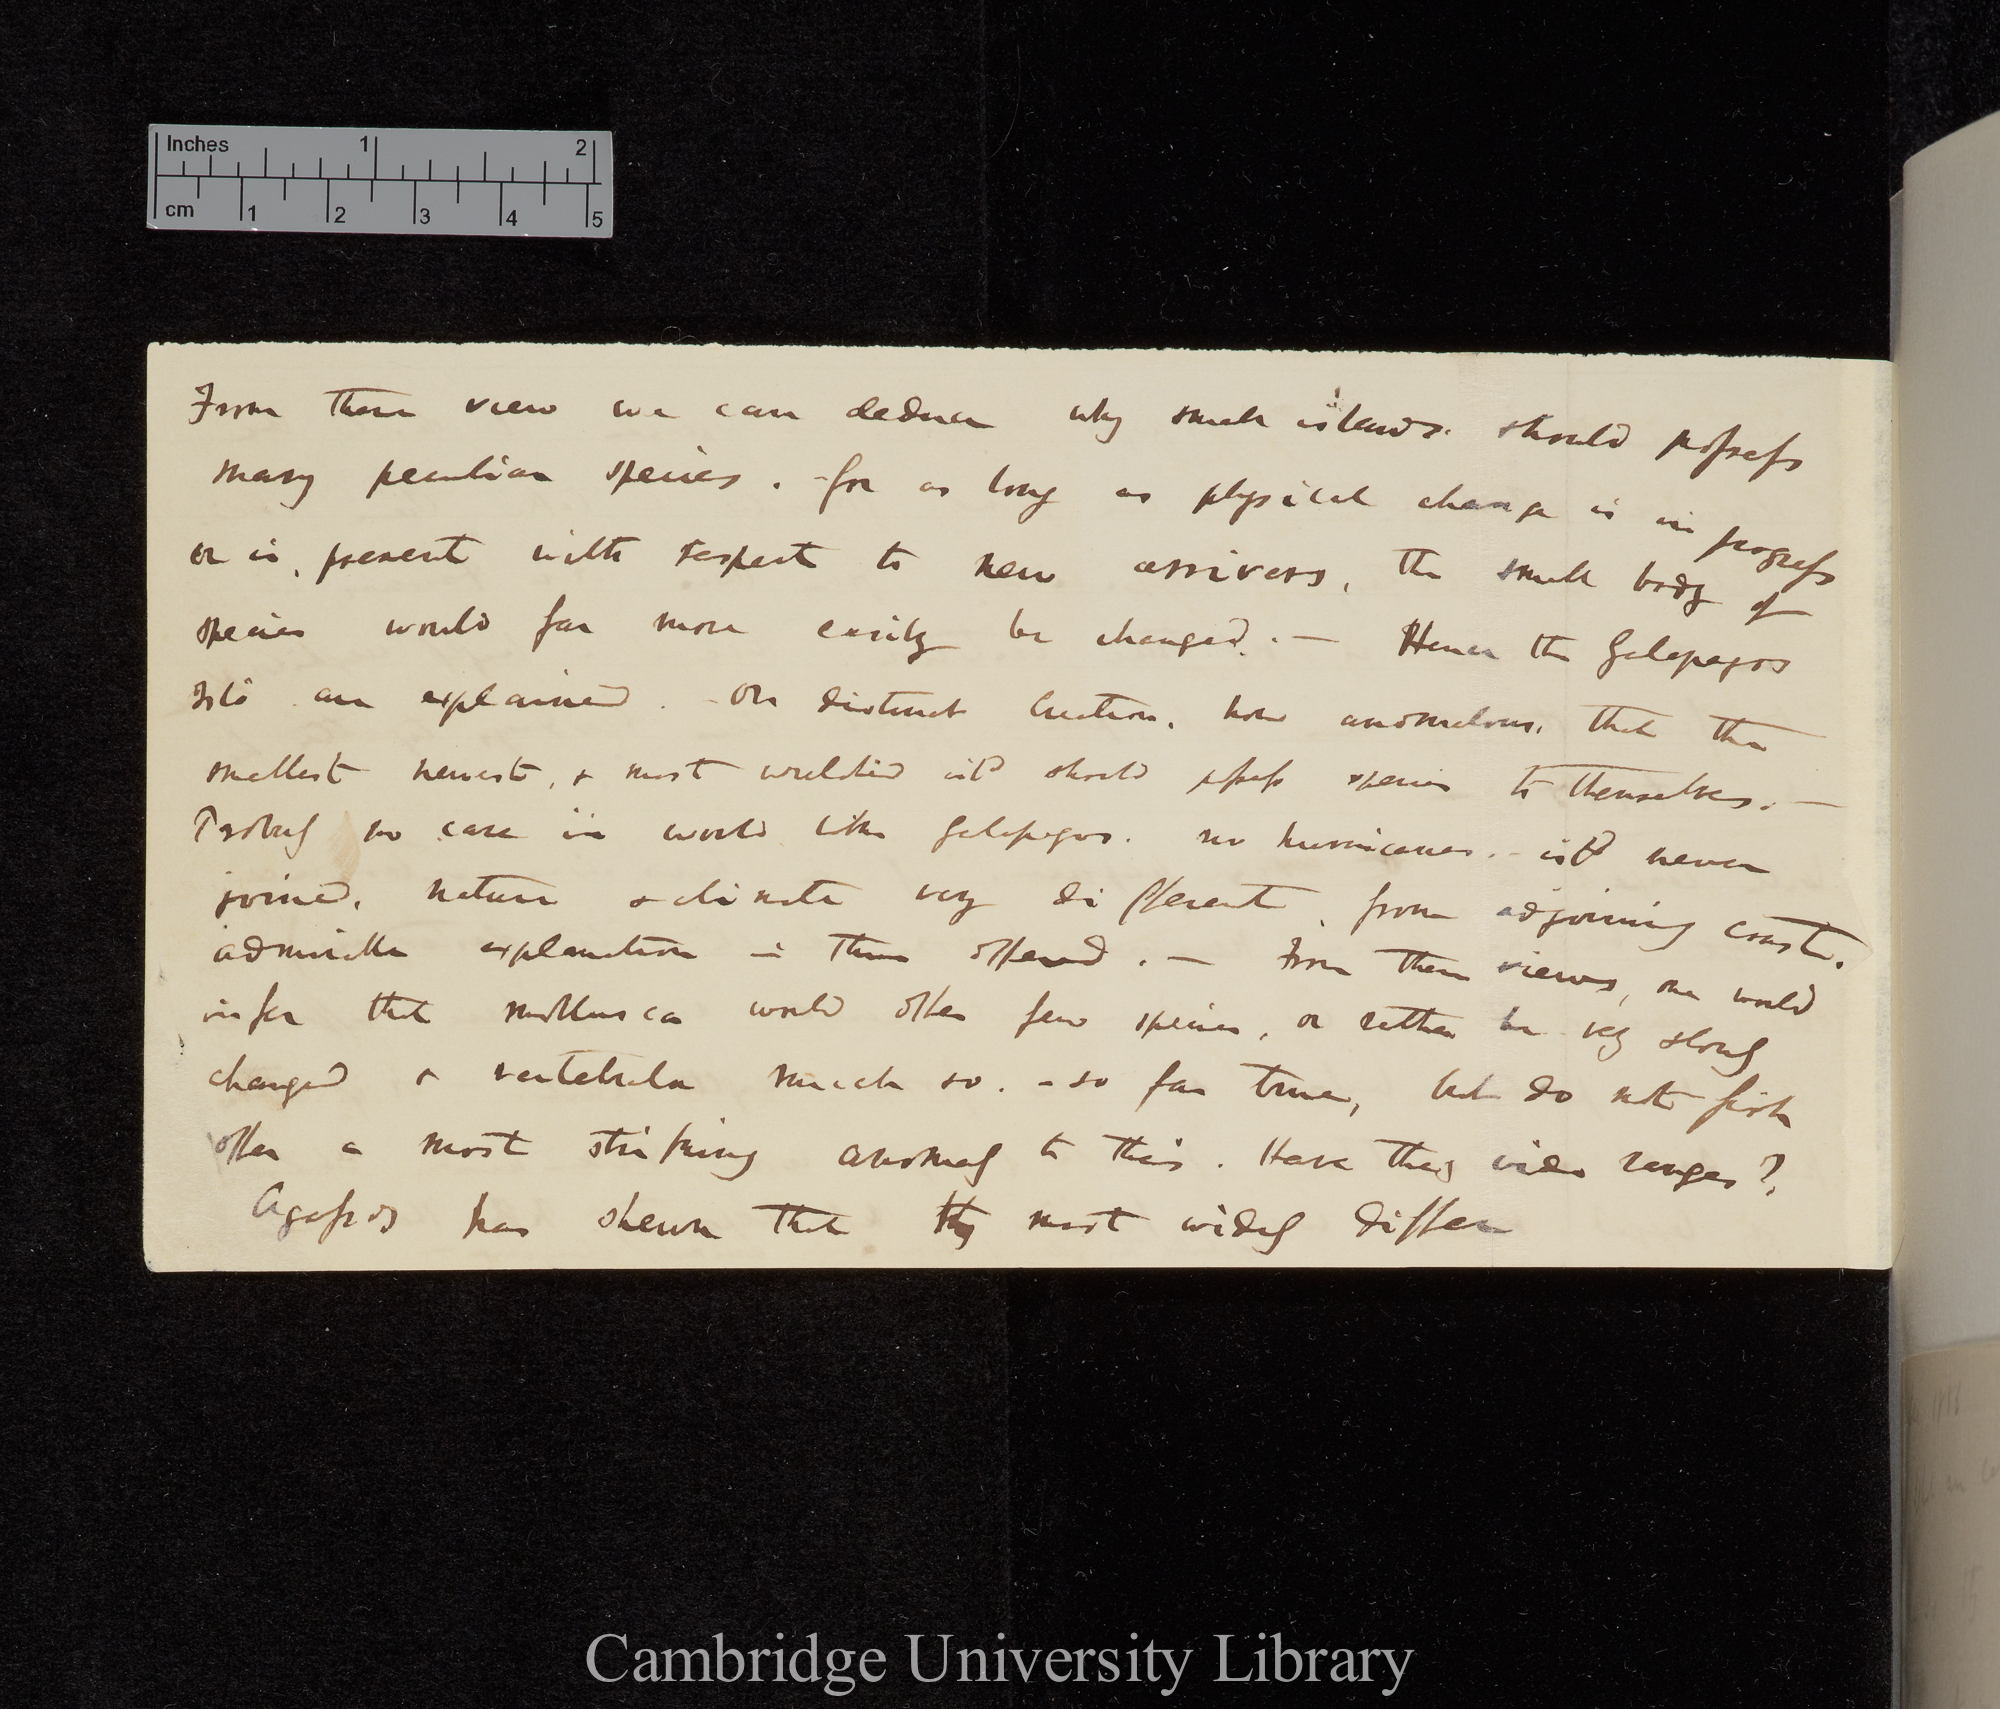 Inches 1 2
cm 1 2 3 4 5
From these view we can deduce why small islands. should possess
many peculiar species. – for as long as physical change is in progress
or is present with respect to new arrivers, the small body of
species would far more easily be changed. — Hence the Galapagos
Isls are explained. – On distinct Creation, how anomalous, that the
smallest newest, & most wretched isld should possess species to themselves. —
Probably no case in world like Galapagos. no hurricanes. – isld never
joined, nature & climate very different, from adjoining coast.
admirable explanation is thus offered. — From these views, one would
infer that mollusca would offer few species, or rather be very slowly
changed & vertebrata much so. – so far true, but do not fish
offer a most striking anomaly to this. Have they wide ranges?
Agassiz has shewn that they most widely differ
Cambridge University Library